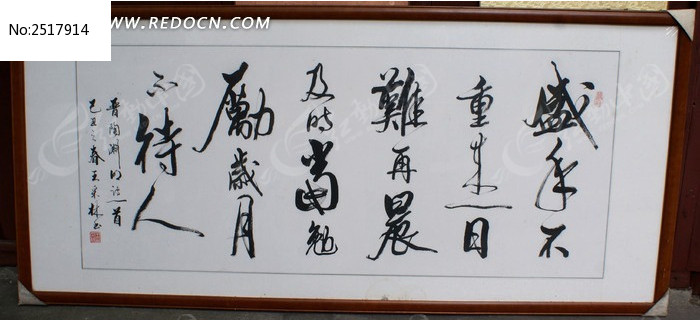 No:2517914
WWW.REDOCN.COM
盛年不
重来一日
難再晨
及时當勉
勵歲月
不待人
晋陶渊明诗一首
己丑之春王采林书